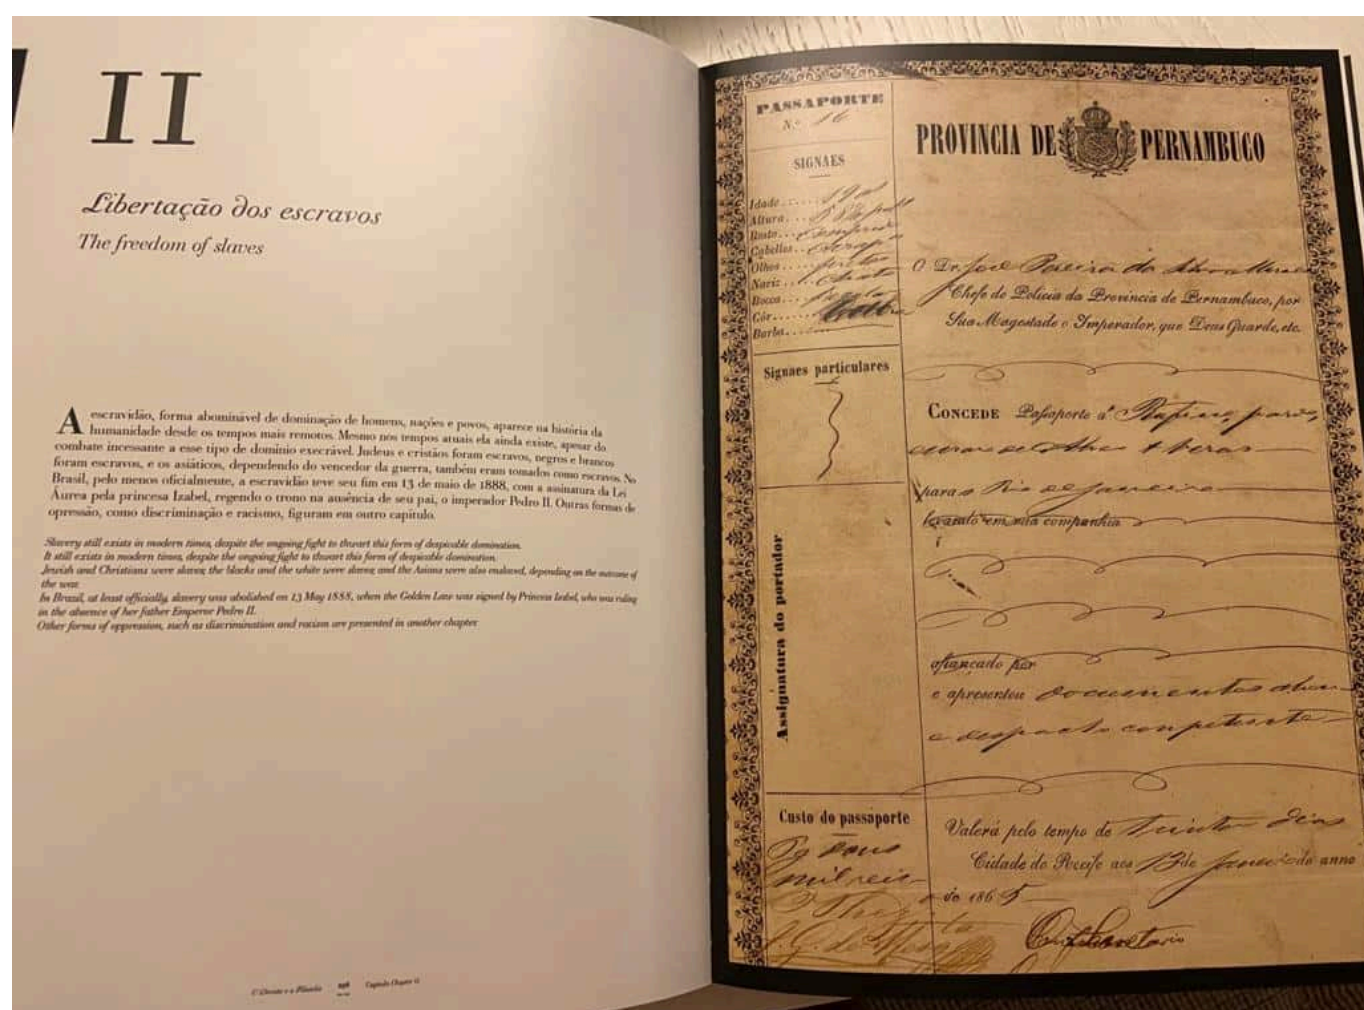 II
Libertação dos escravos
The freedom of slaves
A escravidão, forma abominável de dominação de homens, nações e povos, aparece na história da
humanidade desde os tempos mais remotos. Mesmo nos tempos atuais ela ainda existe, apesar do
combate incessante a esse tipo de domínio execrável. Judeus e cristãos foram escravos, negros e brancos
foram escravos, e os asiáticos, dependendo do vencedor da guerra, também eram tomados como escravos. No
Brasil, pelo menos oficialmente, a escravidão teve seu fim em 13 de maio de 1888, com a assinatura da Lei
Áurea pela princesa Izabel, regendo o trono na ausência de seu pai, o imperador Pedro II. Outras formas de
opressão, como discriminação e racismo, figuram em outro capítulo.
Slavery still exists in modern times, despite the ongoing fight to thwart this form of despicable domination.
It still exists in modern times, despite the ongoing fight to thwart this form of despicable domination.
Jewish and Christians were slaves; the blacks and the white were slaves; and the Asians were also enslaved, depending on the outcome of
the war.
In Brazil, at least officially, slavery was abolished on 13 May 1888, when the Golden Law was signed by Princess Isabel, who was ruling
in the absence of her father Emperor Pedro II.
Other forms of oppression, such as discrimination and racism are presented in another chapter.
PASSAPORTE
Nº 16
SIGNAES
Idade
Altura
Rosto comprido
Cabellos
Olhos pretos
Nariz chato
Bocca
Côr
Barba
Signaes particulares
Assignatura do portador
Custo do passaporte
mil reis
PROVINCIA DE PERNAMBUCO
O Dr. José Pereira da Silva Moraes
Chefe de Policia da Provincia de Pernambuco, por
Sua Magestade o Imperador, que Deus Guarde, etc.
CONCEDE Passaporte á
para o Rio de Janeiro
levando em sua companhia
afiançado por
e apresentou documentos
e despacho competente
Valerá pelo tempo de trinta dias
Cidade do Recife aos 13 de Janeiro do anno
de 1865